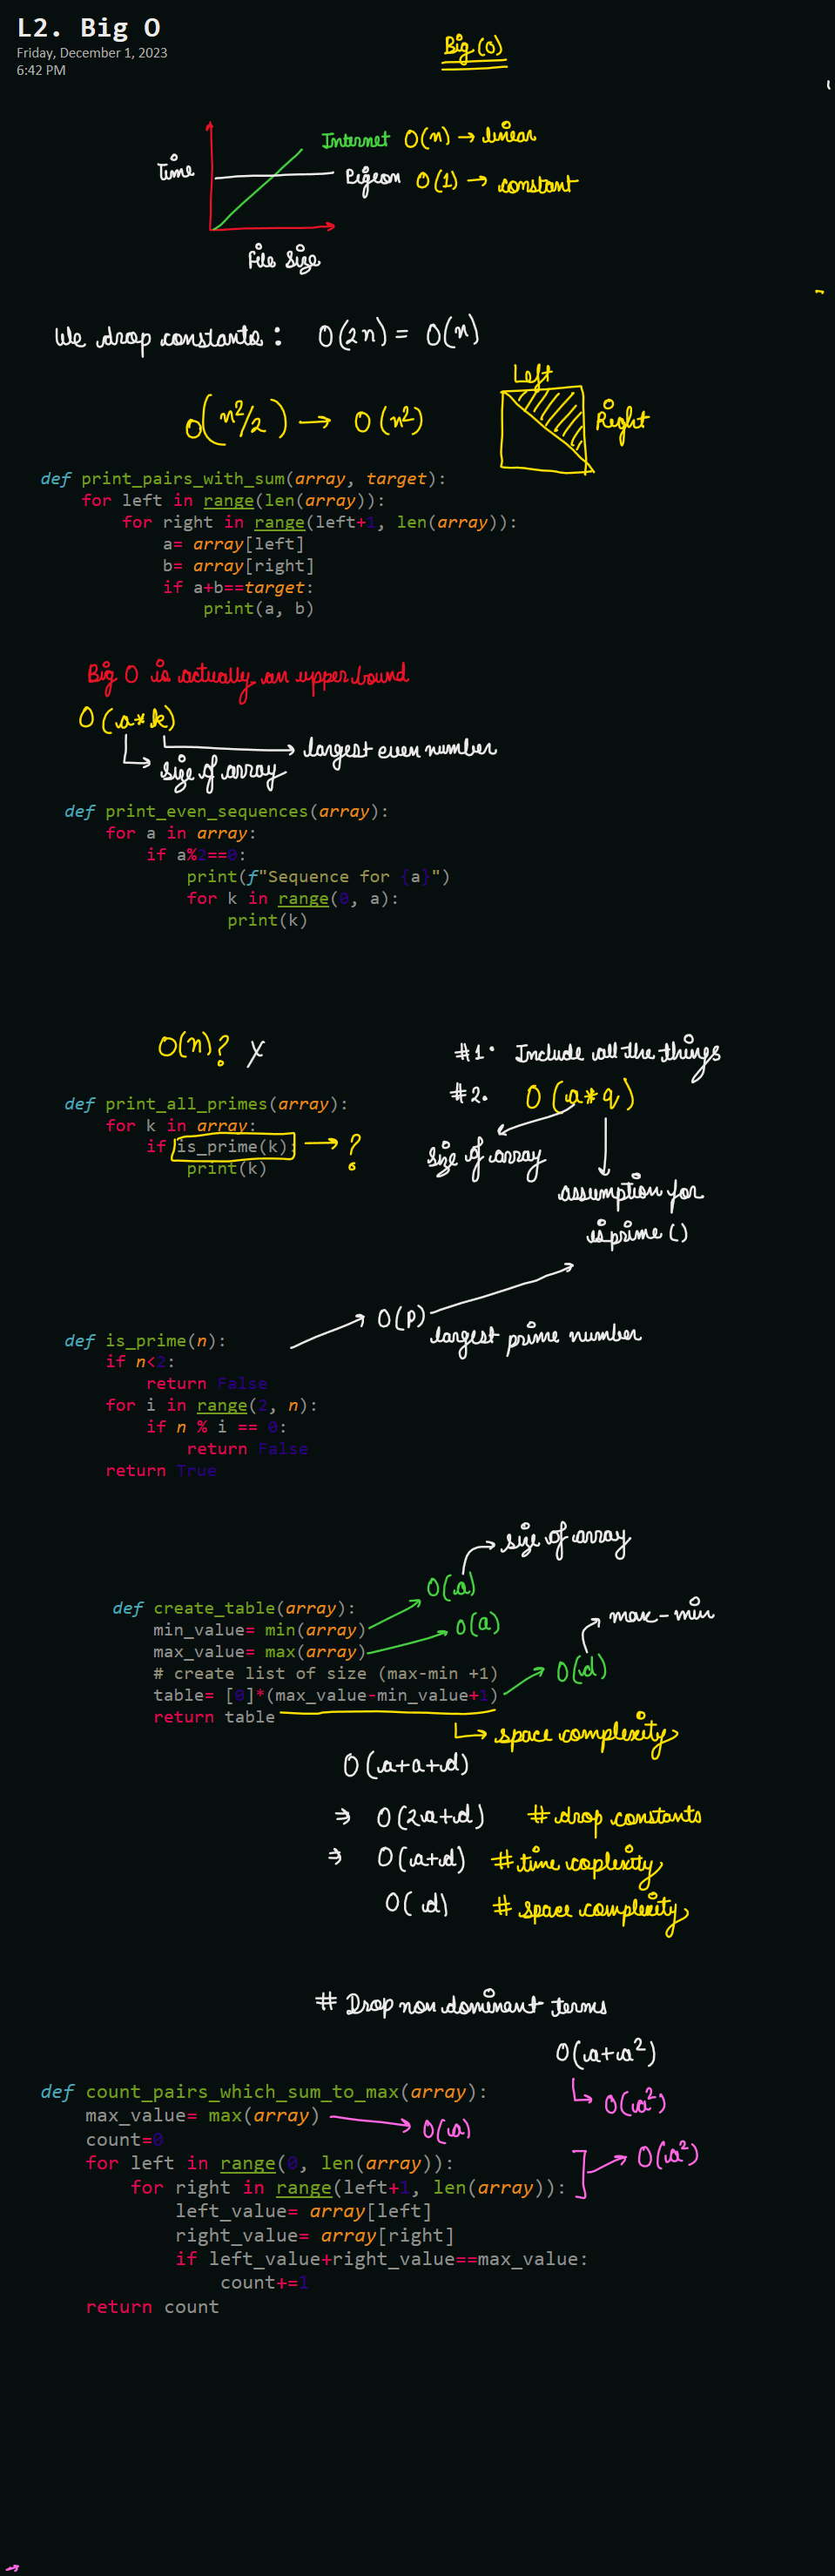 L2. Big O
Friday, December 1, 2023
6:42 PM
Big (O)
Internet O(n) → linear
Time
Pigeon O(1) → constant
File Size
We drop constants : O(2n) = O(n)
Left
O(n²/2) → O(n²)
Right
def print_pairs_with_sum(array, target):
for left in range(len(array)):
for right in range(left+1, len(array)):
a= array[left]
b= array[right]
if a+b==target:
print(a, b)
Big O is actually an upper bound
O(a*k)
largest even number
size of array
def print_even_sequences(array):
for a in array:
if a%2==0:
print(f"Sequence for {a}")
for k in range(0, a):
print(k)
O(n)? X
#1. Include all the things
#2. O(a*q)
def print_all_primes(array):
for k in array:
if is_prime(k): → ?
print(k)
size of array
assumption for
isprime()
O(p)
largest prime number
def is_prime(n):
if n<2:
return False
for i in range(2, n):
if n % i == 0:
return False
return True
size of array
O(a)
def create_table(array):
min_value= min(array)
O(a)
max - min
max_value= max(array)
# create list of size (max-min +1)
O(d)
table= [0]*(max_value-min_value+1)
return table
space complexity
O(a+a+d)
⇒ O(2a+d) # drop constants
⇒ O(a+d) # time coplexity
O(d) # space complexity
# Drop non dominent terms
O(a+a²)
O(a²)
def count_pairs_which_sum_to_max(array):
max_value= max(array) → O(a)
count=0
for left in range(0, len(array)):
O(a²)
for right in range(left+1, len(array)):
left_value= array[left]
right_value= array[right]
if left_value+right_value==max_value:
count+=1
return count